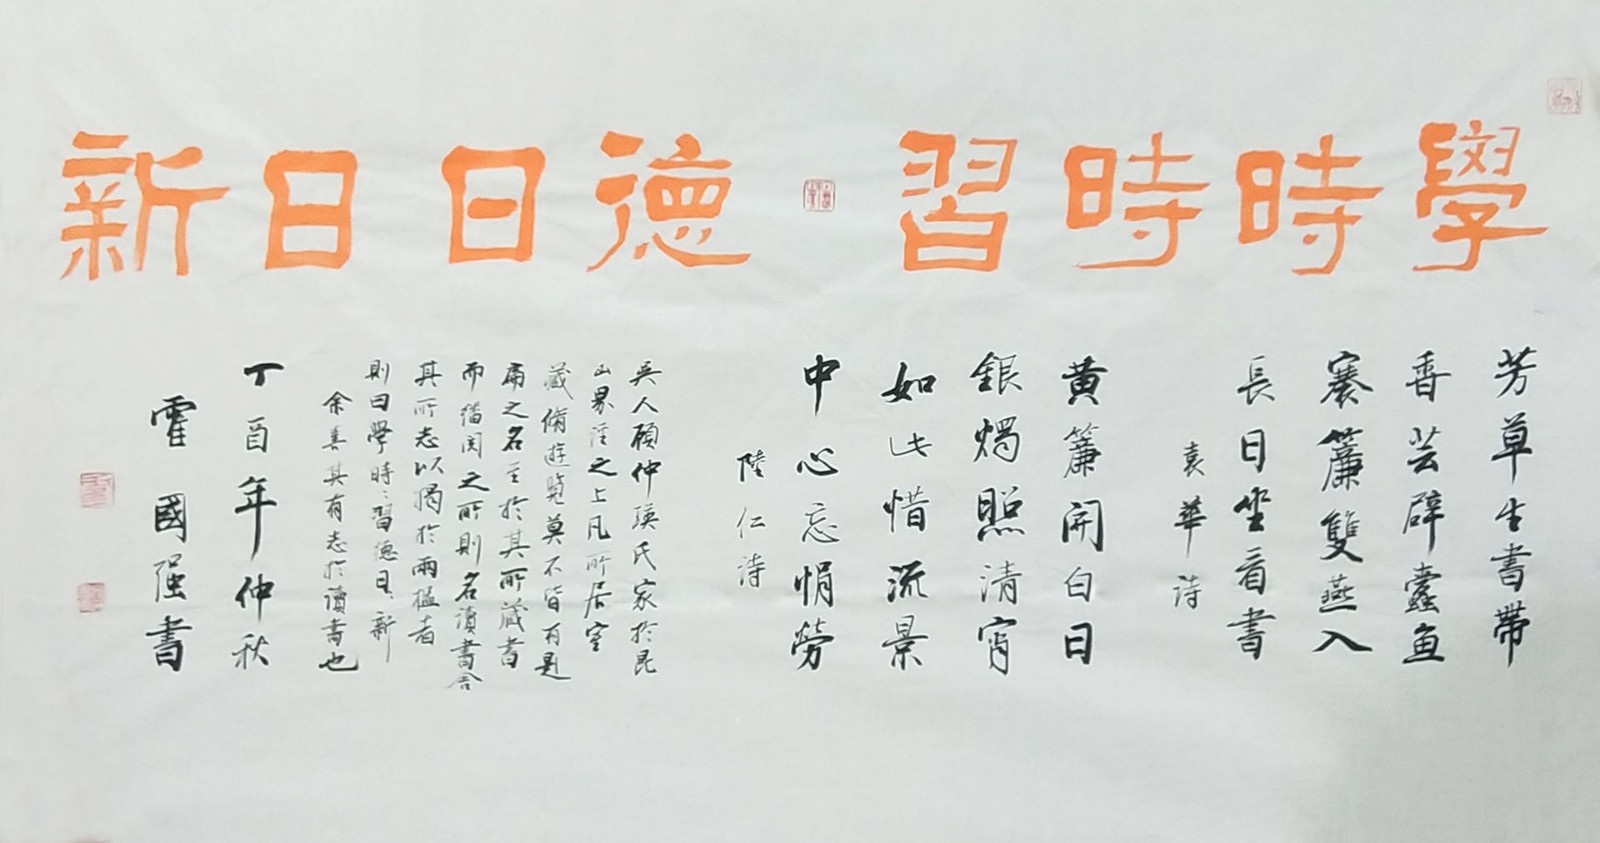 學時時習
德日日新
芳草生書帶
香芸辟蠹鱼
褰簾雙燕入
長日坐看書
袁華诗
黄簾開白日
銀燭照清宵
如此惜流景
中心忘悁劳
陸仁诗
吴人顾仲瑛氏家於昆
山界溪之上凡所居室
藏脩遊覽莫不皆有題
扁之名至於其所藏書
而繙閲之所則名讀書舍
其所志以揭於兩楹者
則曰學時時習德日日新
余喜其有志於讀書也
丁酉年仲秋
霍國强書